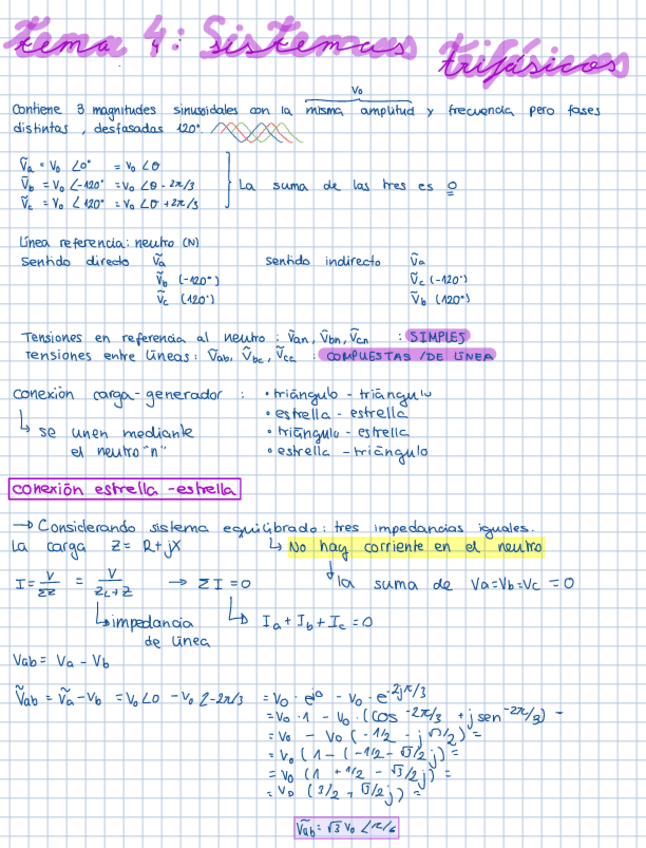 tema 4: Sistemas trifásicos
Vo
Contiene 3 magnitudes sinusoidales con la misma amplitud y frecuencia pero fases
distintas, desfasadas 120°.
Ṽa = Vo ∠0° = Vo ∠θ
Ṽb = Vo ∠-120° = Vo ∠θ - 2π/3
Ṽc = Vo ∠120° = Vo ∠θ + 2π/3
La suma de las tres es 0
Línea referencia: neutro (N)
Sentido directo Ṽa sentido indirecto Ṽa
Ṽb (-120°) Ṽc (-120°)
Ṽc (120°) Ṽb (120°)
Tensiones en referencia al neutro: Ṽan, Ṽbn, Ṽcn : SIMPLES
Tensiones entre líneas: Ṽab, Ṽbc, Ṽca : COMPUESTAS /DE LÍNEA
conexión carga-generador : • triángulo - triángulo
• estrella - estrella
↳ se unen mediante • triángulo - estrella
el neutro "n" • estrella - triángulo
conexión estrella - estrella
→ Considerando sistema equilibrado: tres impedancias iguales.
La carga Z = R + jX ↳ No hay corriente en el neutro
I = V/ΣZ = V/ZL+Z → ΣI = 0 ↓ la suma de Va=Vb=Vc = 0
↳ impedancia de línea ↳ Ia + Ib + Ic = 0
Vab = Va - Vb
Ṽab = Ṽa - Vb = Vo ∠0 - Vo ∠-2π/3 = Vo · e^j0 - Vo · e^-2jπ/3
= Vo · 1 - Vo · (cos -2π/3 + j sen -2π/3) =
= Vo - Vo (-1/2 - j √3/2) =
= Vo (1 - (-1/2 - √3/2 j) =
= Vo (1 + 1/2 - √3/2 j) =
= Vo (3/2 + √3/2 j) =
Ṽab = √3 Vo ∠π/6